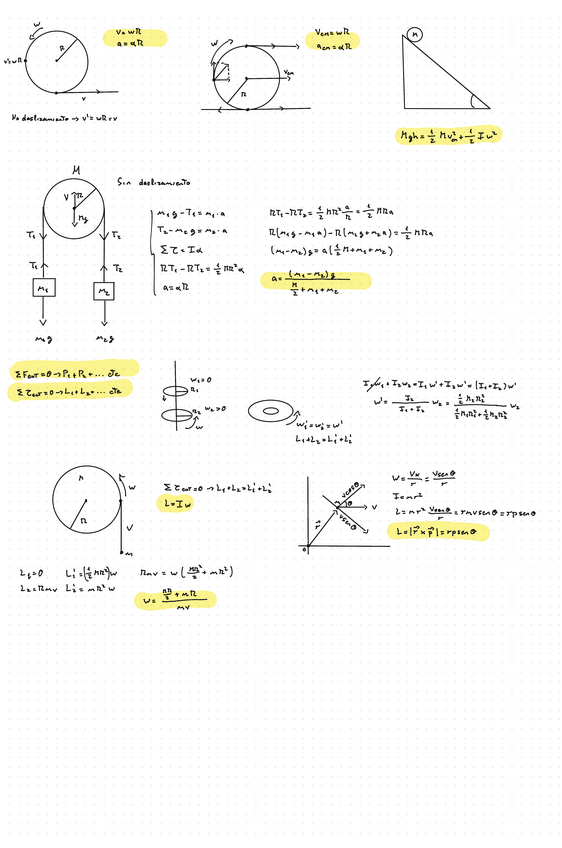 w
R
v'=wR
v
No deslizamiento → v'=wR=v
v=wR
a=αR
w
R
v_cm
v_cm=wR
a_cm=αR
M
Mgh = 1/2 M v²_cm + 1/2 I w²
M
Sin deslizamiento
V
R
Mg
T₁
T₂
T₁
T₂
m₁
m₂
m₁g
m₂g
m₁g - T₁ = m₁·a
T₂ - m₂g = m₂·a
Στ = Iα
RT₁ - RT₂ = 1/2 MR²α
a = αR
RT₁ - RT₂ = 1/2 MR² a/R = 1/2 MRa
R(m₁g - m₁a) - R(m₂g + m₂a) = 1/2 MRa
(m₁-m₂)g = a(1/2 M + m₁ + m₂)
a = (m₁-m₂)g / (M/2 + m₁ + m₂)
ΣF_ext = 0 → P₁ + P₂ + ... cte
Στ_ext = 0 → L₁ + L₂ + ... cte
w₁=0
R₁
R₂
w₂>0
w
w₁'=w₂'=w'
L₁+L₂=L₁'+L₂'
I₁w₁ + I₂w₂ = I₁w' + I₂w' = (I₁+I₂)w'
w' = I₂/(I₁+I₂) w₂ = (1/2 M₂R₂²)/(1/2 M₁R₁² + 1/2 M₂R₂²) w₂
M
R
w
V
m
Στ_ext = 0 → L₁+L₂=L₁'+L₂'
L = Iw
L₁=0
L₁'=(1/2 MR²)w
L₂=Rmv
L₂'=mR²w
Rmv = w(MR²/2 + mR²)
w = (MR/2 + mR)/mv
vcosθ
θ
V
vsenθ
r
m
0
w = v_x/r = vsenθ/r
I = mr²
L = mr² vsenθ/r = rmvsenθ = rpsenθ
L = |r⃗ x p⃗| = rpsenθ